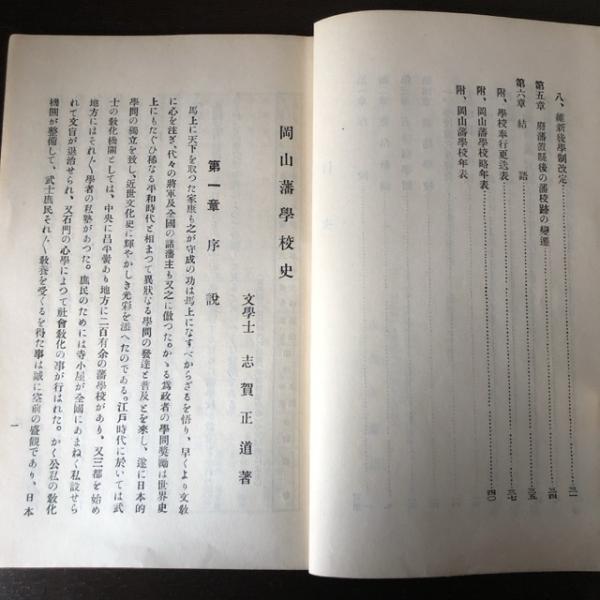 八、維新後學制改定………………三一
第五章 廢藩置縣後の藩校跡の變遷………三四
第六章 結語………………三五
附、學校奉行更迭表………………三七
附、岡山藩學校略年表………………四〇
附、岡山藩學校年表
岡山藩學校史
文學士 志賀正道著
第一章 序說
馬上に天下を取つた家康も之が守成の功は馬上になすべからざるを悟り、早くより文敎
に心を注ぎ、代々の將軍及全國の諸藩主も又之に倣つた。かゝる爲政者の學問奬勵は世界史
上にもたぐひ稀なる平和時代と相まつて異狀なる學問の發達と普及とを來し、遂に日本的
學問の獨立を致し、近世文化史に輝やかしき光彩を添へたのである。江戶時代に於いては武
士の敎化機關としては、中央に昌平黌あり地方に二百有余の藩學校があり、又三都を始め
地方にはそれ〲學者の私塾があつた。庶民のためには寺小屋が全國にあまねく私設せら
れて文盲が退治せられ、又石門の心學によつて社會敎化の事が行はれた。かく公私の敎化
機關が整備して、武士庶民それ〲敎養を受くるを得た事は誠に空前の盛觀であり、日本
一